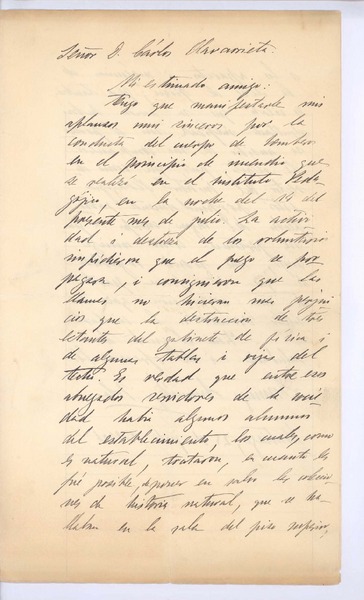 Señor D. Cárlos Olavarrieta.
Mi estimado amigo:
Tengo que manifestarle mis
aplausos mui sinceros por la
conducta del cuerpo de bomberos
en el principio de incendio que
se realizó en el instituto Peda-
gójico, en la noche del 14 del
presente mes de julio. La activi
dad i destreza de los voluntarios
impidieron que el fuego se pro
pagara, i consiguieron que las
llamas no hicieran mas perjui
cios que la destruccion de tres
estantes del gabinete de física i
de algunas tablas i vigas del
techo. Es verdad que entre esos
abnegados servidores de la socie
dad habia algunos alumnos
del establecimiento, los cuales, como
es natural, trataron, en cuanto les
fué posible, de poner en salvo las coleccio
nes de historia natural, que se ha-
llaban en la sala del piso superior,